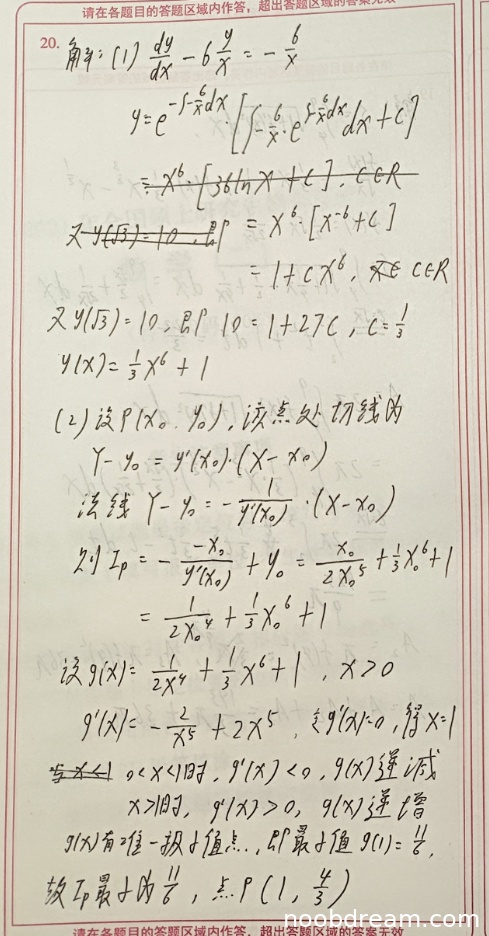 请在各题目的答题区域内作答，超出答题区域的答案无效
20.
解:(1) dy/dx - 6 y/x = - 6/x
y = e^{-∫-6/x dx} · [∫-6/x · e^{∫-6/x dx} dx + C]
= x^6 · [36lnx + C], C∈R
又 y(√3)=10, 即 = x^6 · [x^{-6} + C]
= 1 + Cx^6, C∈R
又 y(√3)=10, 即 10 = 1+27C, C = 1/3
y(x) = 1/3 x^6 + 1
(2) 设P(x₀, y₀), 该点处切线为
Y-y₀ = y'(x₀)·(X-x₀)
法线 Y-y₀ = - 1/y'(x₀) ·(X-x₀)
则 I_P = - -x₀/y'(x₀) + y₀ = x₀/2x₀^5 + 1/3 x₀^6 + 1
= 1/2x₀^4 + 1/3 x₀^6 + 1
设 g(x) = 1/2x^4 + 1/3 x^6 + 1, x>0
g'(x) = - 2/x^5 + 2x^5, 令g'(x)=0, 得x=1
与x<1 0<x<1时, g'(x)<0, g(x)递减
x>1时, g'(x)>0, g(x)递增
g(x)有唯一极小值点, 即最小值 g(1) = 11/6,
故 I_P最小为 11/6, 点P(1, 4/3)
noobdream.com
请在各题目的答题区域内作答，超出答题区域的答案无效